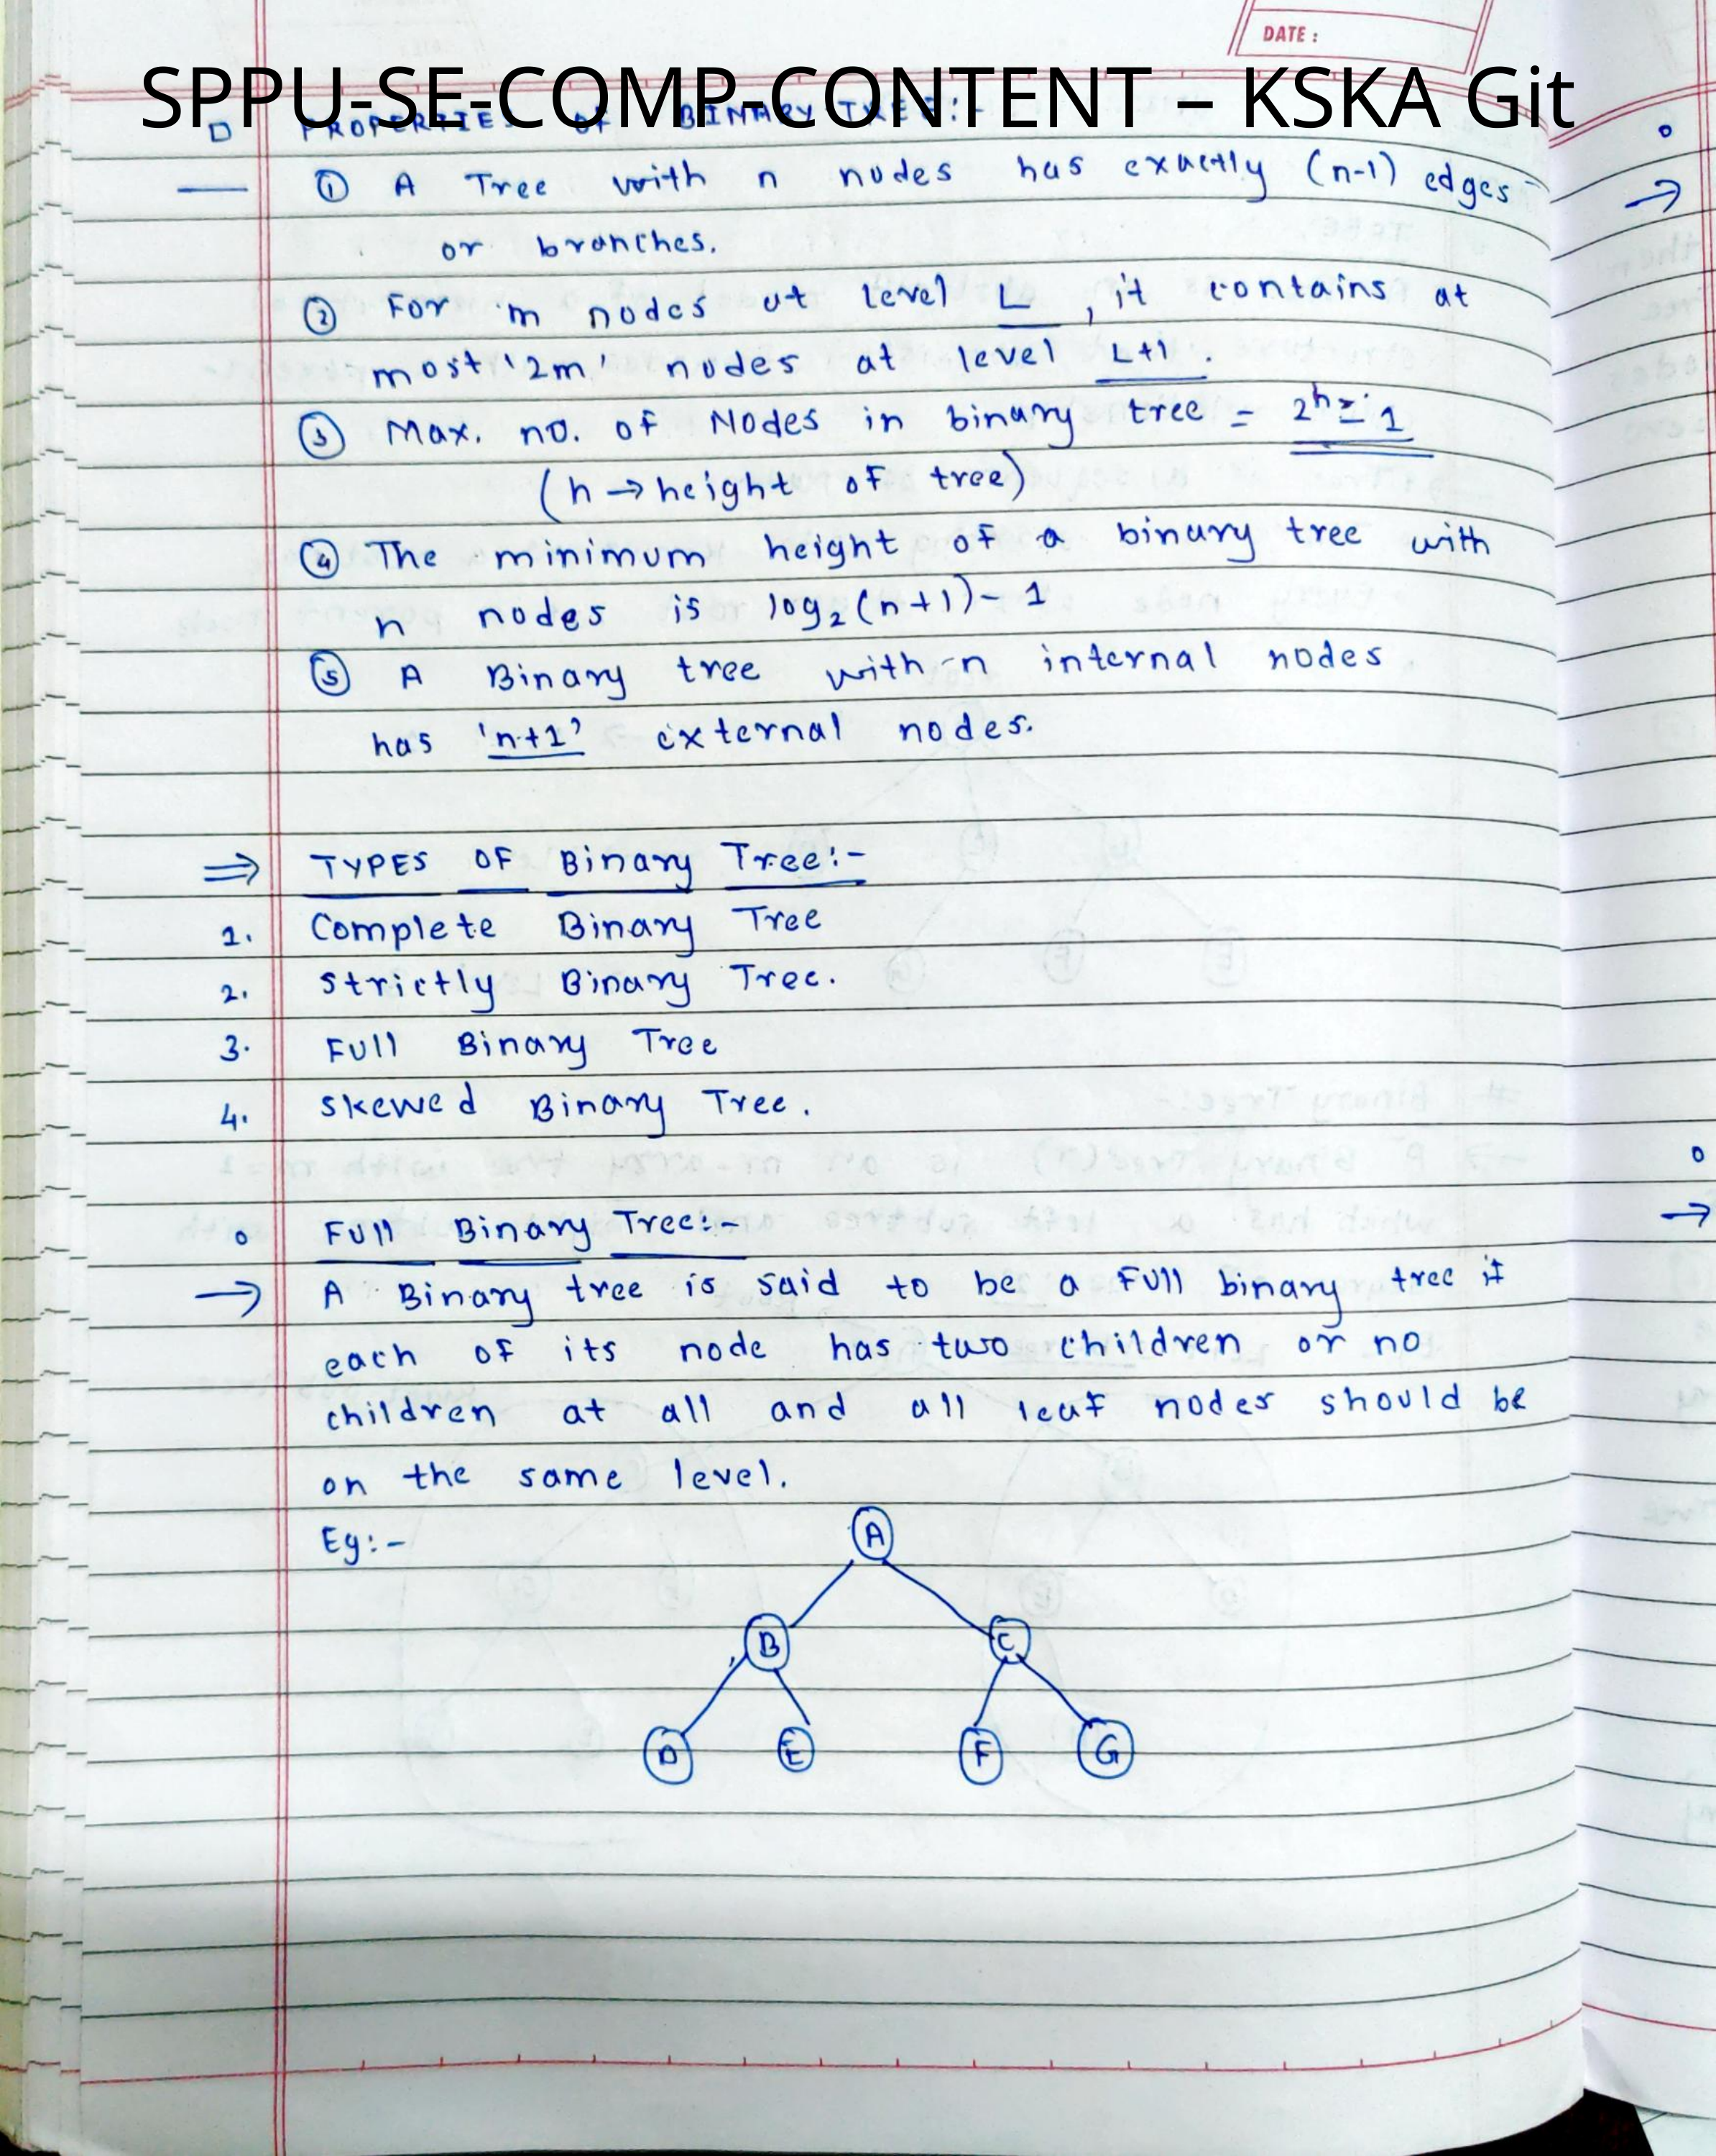 DATE :
SPPU-SE-COMP-CONTENT – KSKA Git
PROPERTIES OF BINARY TREE:-
① A Tree with n nodes has exactly (n-1) edges
or branches.
② For 'm nodes at level L, it contains at
most '2m' nodes at level L+1.
③ Max. no. of Nodes in binary tree = 2^h - 1
(h → height of tree)
④ The minimum height of a binary tree with
n nodes is log₂(n+1) - 1
⑤ A Binary tree with n internal nodes
has 'n+1' external nodes.
⇒ TYPES OF Binary Tree:-
1. Complete Binary Tree
2. Strictly Binary Tree.
3. Full Binary Tree
4. Skewed Binary Tree.
o Full Binary Tree:-
→ A Binary tree is said to be a Full binary tree if
each of its node has two children or no
children at all and all leaf nodes should be
on the same level.
Eg:-
A
B C
D E F G